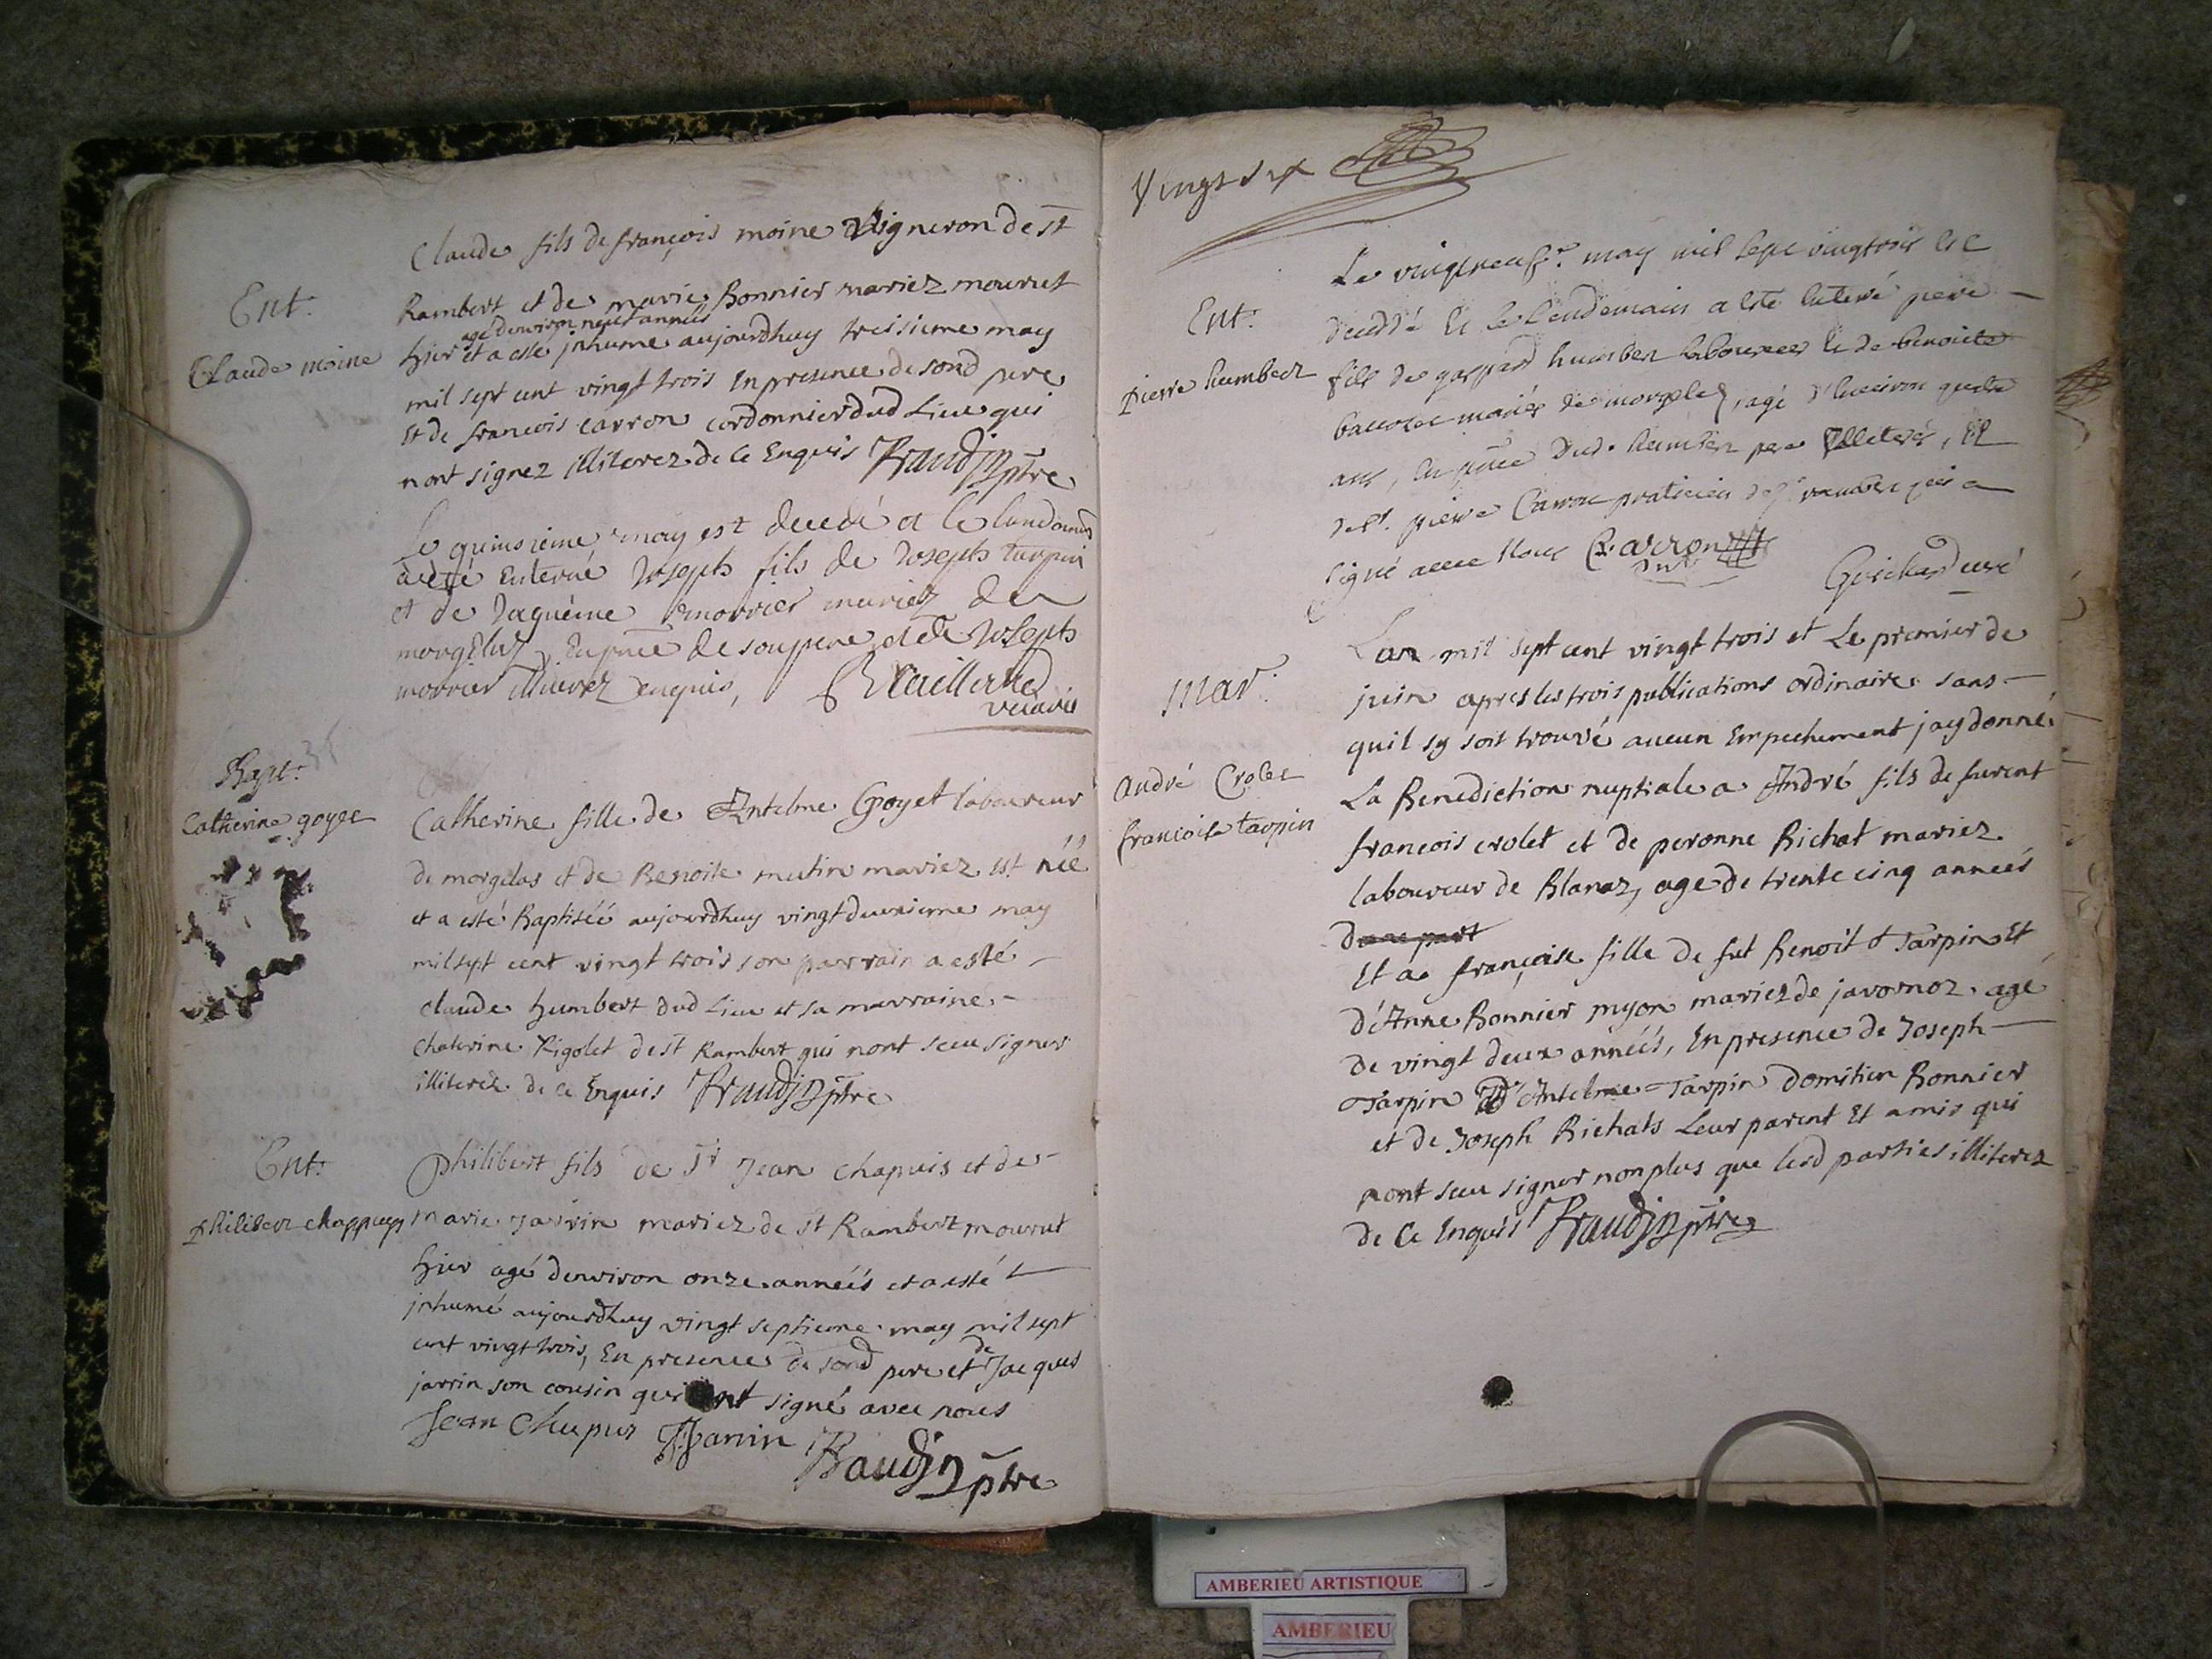 Claude fils de françois moine Vigneron de st
Ent.
Claude moine
Rambert et de marie Bonnier mariez mourut
agé denviron neuf années
hier et a esté jnhumé aujourdhuy treisieme may
mil sept cent vingt trois En presence de sond pere
et de francois carron cordonnier dud Lieu qui
nont signez illiterez de ce Enquis Braudin ptre
Le quinsieme may est decedé et le landemain
a été Enterré Joseph fils de Joseph tarpin
et de Jaquéme morrier mariez de
morgelaz, En pnce de son pere et de Joseph
morrier illiterez enquis,
vicaire
Bapt.
Catherine goyet
Catherine fille de Antelme Goyet laboureur
de morgelas et de Benoite mutin mariez est néé
et a esté Baptiséé aujourdhuy vingtdeuxieme may
mil sept cent vingt trois son parrain a esté
claude humbert dud Lieu et sa marraine
Chaterine Rigolet de st Rambert qui nont sceu signer
illiterez de ce Enquis Braudin ptre
Ent.
philibert chappuys
Philibert fils de Sr Jean Chapuis et de
Marie Jarrin mariez de st Rambert mourut
hier agé denviron onze années et a esté
jnhumé aujourdhuy vingt septieme may mil sept
cent vingt trois, En presence de sond pere et de Jacques
jarrin son cousin qui ont signé avec nous
Jean Chapuis Jarrin
Braudin ptre
Vingt six
Ent.
pierre humbert
Le vingtneufe. may mil sept vingtrois est
decedé et le lendemain a esté enterré pierre
fils de gaspard humbert laboureur et de benoite
mariés de morgelas, agé d'environ quatre
ans, en pnce dud. humbert pere illiteré, et
de sr. pierre Carron praticien de st rambert qui a
signé avec nous Carron
Guichard curé
Mar.
andré Crolet
francoise tarpin
Lan mil sept cent vingt trois et Le premier de
juin apres les trois publications ordinaires sans
quil sy soit trouvé aucun Empechement jay donné
La Benediction nuptiale a André fils de furent
francois crolet et de peronne Richat mariez
laboureur de Blanaz, age de trente cinq annees
dune part
Et a françoise fille de fut Benoit Tarpin Et
d'Anne Bonnier myon mariez de javornoz agé
de vingt deux annéés, En presence de Joseph
Tarpin d'Antelme Tarpin Domitien Bonnier
et de Joseph Richats Leur parent Et amis qui
nont sceu signer non plus que lesd parties illiterez
de Ce Enquis Braudin ptre
AMBERIEU ARTISTIQUE
AMBERIEU